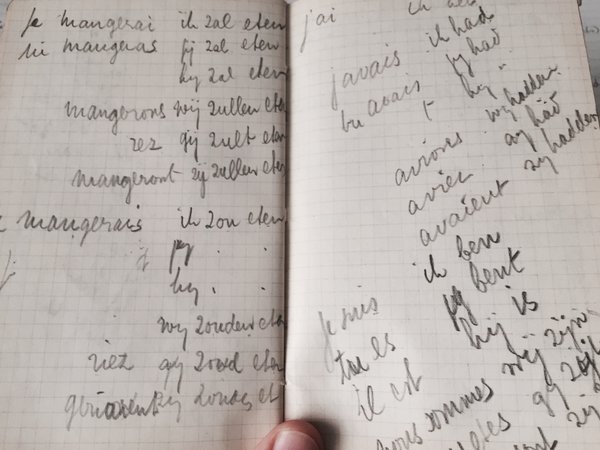 je mangerai ik zal eten
tu mangeras gij zal eten
hij zal eten
mangerons wij zullen eten
rez gij zult eten
mangeront zij zullen eten
mangerais ik zou eten
hij . .
wij zouden eten
riez gij zoud eten
j'ai
j'avais ik had
tu avais gij had
t hij "
avions wij hadden
aviez gij had
avaient zij hadden
ik ben
je suis gij bent
tu es hij is
il est wij zijn
nous sommes gij zijt